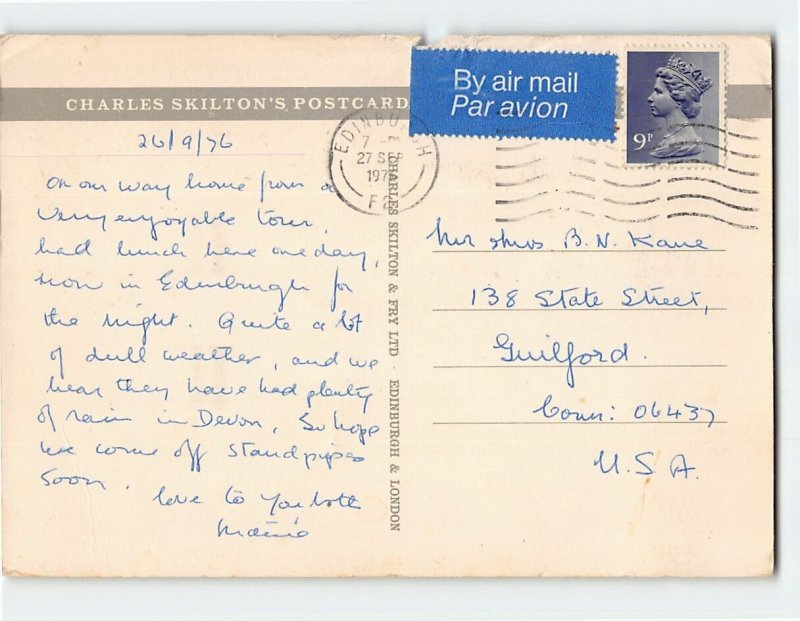 CHARLES SKILTON'S POSTCARD
By air mail
Par avion
9P
EDINBURGH
27 SEP
197
F2
26/9/76
On our way home from a
very enjoyable tour,
had lunch here one day,
now in Edinburgh for
the night. Quite a lot
of dull weather, and we
hear they have had plenty
of rain in Devon, so hope
we come off standpipes
soon.
Love to you both
CHARLES SKILTON & FRY LTD · EDINBURGH & LONDON
Mr & Mrs B. N. Kane
138 State Street,
Guilford.
Conn: 06437
U.S.A.